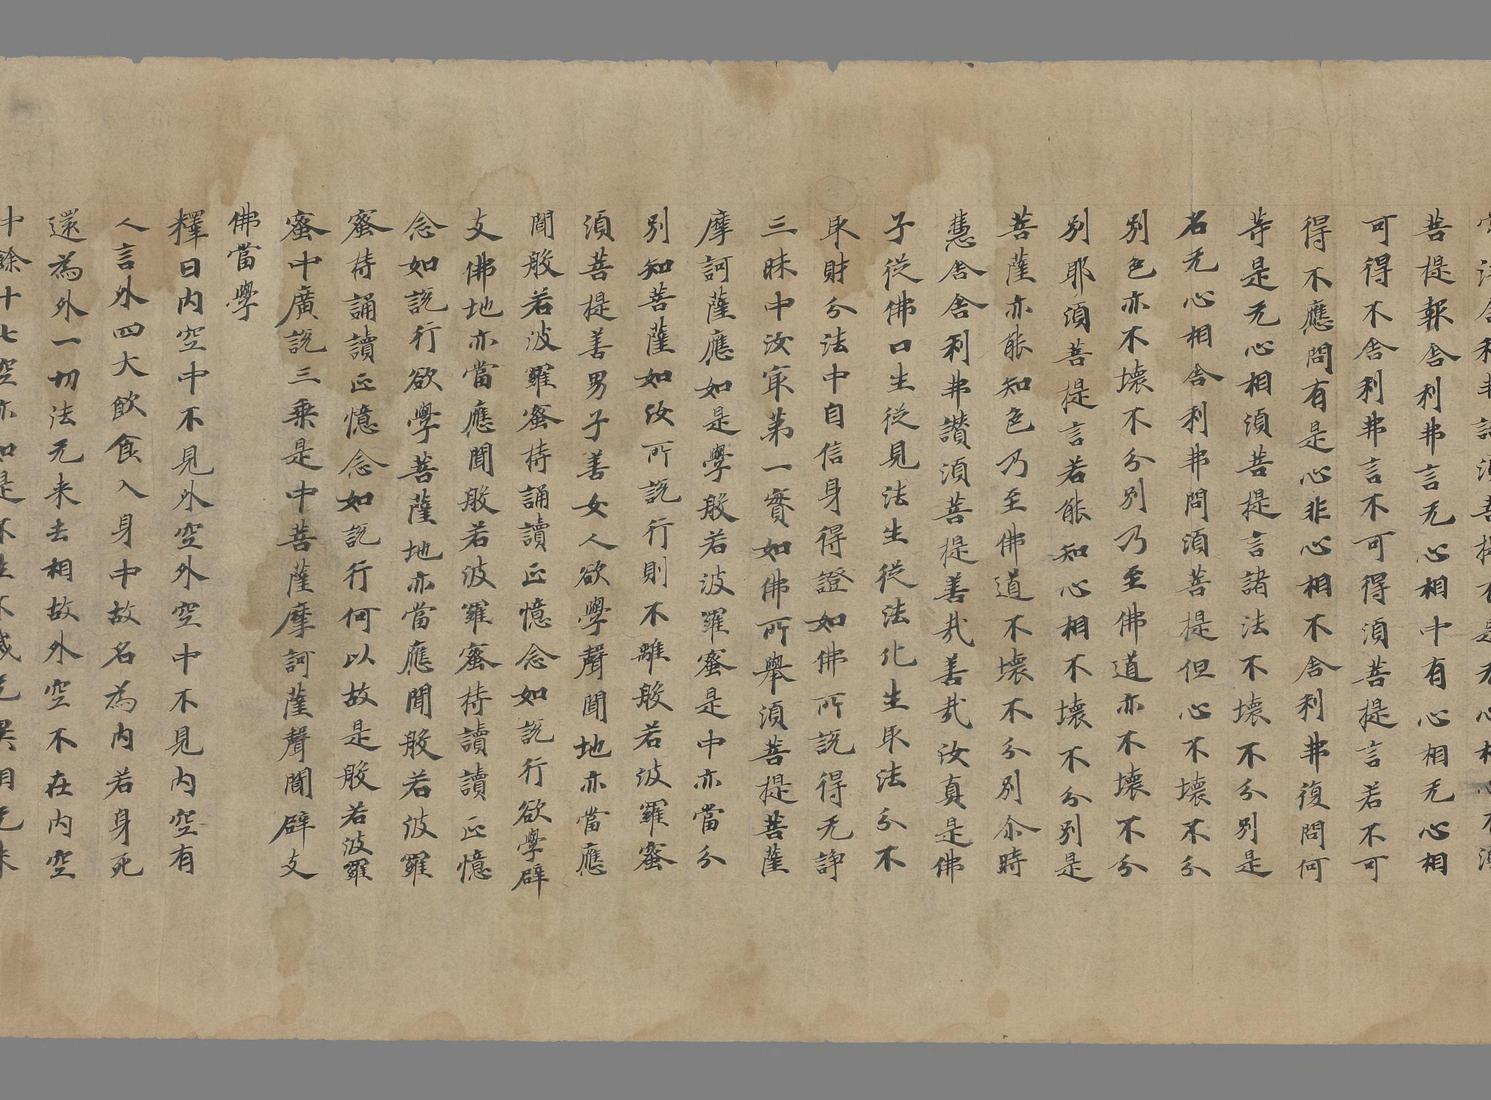 淨舍利弗語須菩提有是无心相心不須
菩提報舍利弗言无心相中有心相无心相
可得不舍利弗言不可得須菩提言若不可
得不應問有是心非心相不舍利弗復問何
等是无心相須菩提言諸法不壞不分別是
名无心相舍利弗問須菩提但心不壞不分
別色亦不壞不分別乃至佛道亦不壞不分
別耶須菩提言若能知心相不壞不分別是
菩薩亦能知色乃至佛道不壞不分別尒時
慧舍舍利弗讚須菩提善哉善哉汝真是佛
子從佛口生從見法生從法化生取法分不
取財分法中自信身得證如佛所說得无諍
三昧中汝㝡第一實如佛所舉須菩提菩薩
摩訶薩應如是學般若波羅蜜是中亦當分
別知菩薩如汝所說行則不離般若波羅蜜
須菩提善男子善女人欲學聲聞地亦當應
聞般若波羅蜜持誦讀正憶念如說行欲學辟
支佛地亦當應聞般若波羅蜜持讀讀正憶
念如說行欲學菩薩地亦當應聞般若波羅
蜜持誦讀正憶念如說行何以故是般若波羅
蜜中廣說三乘是中菩薩摩訶薩聲聞辟支
佛當學
釋曰內空中不見外空外空中不見內空有
人言外四大飲食入身中故名為內若身死
還為外一切法无来去相故外空不在內空
中餘十七空亦如是不生不滅无異相无来